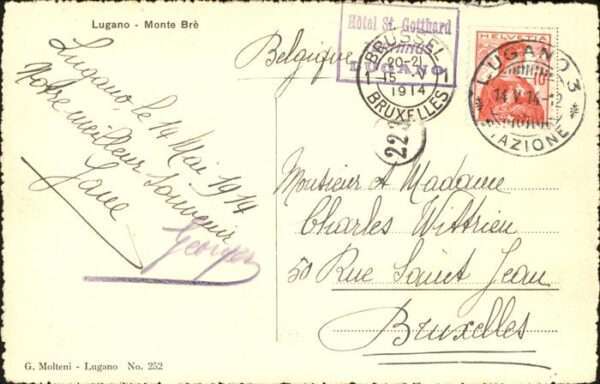 Lugano - Monte Brè
Hôtel St. Gotthard
LUGANO
Belgique
BRUSSEL
20-21
15 V
1914
BRUXELLES
HELVETIA
10
LUGANO 3
14.V.14-12
223
Lugano, le 14 Mai 1914
Notre meilleur souvenir
Jane
Georges
Monsieur et Madame
Charles Wittrien
50 Rue Saint Jean
Bruxelles
G. Molteni - Lugano No. 252